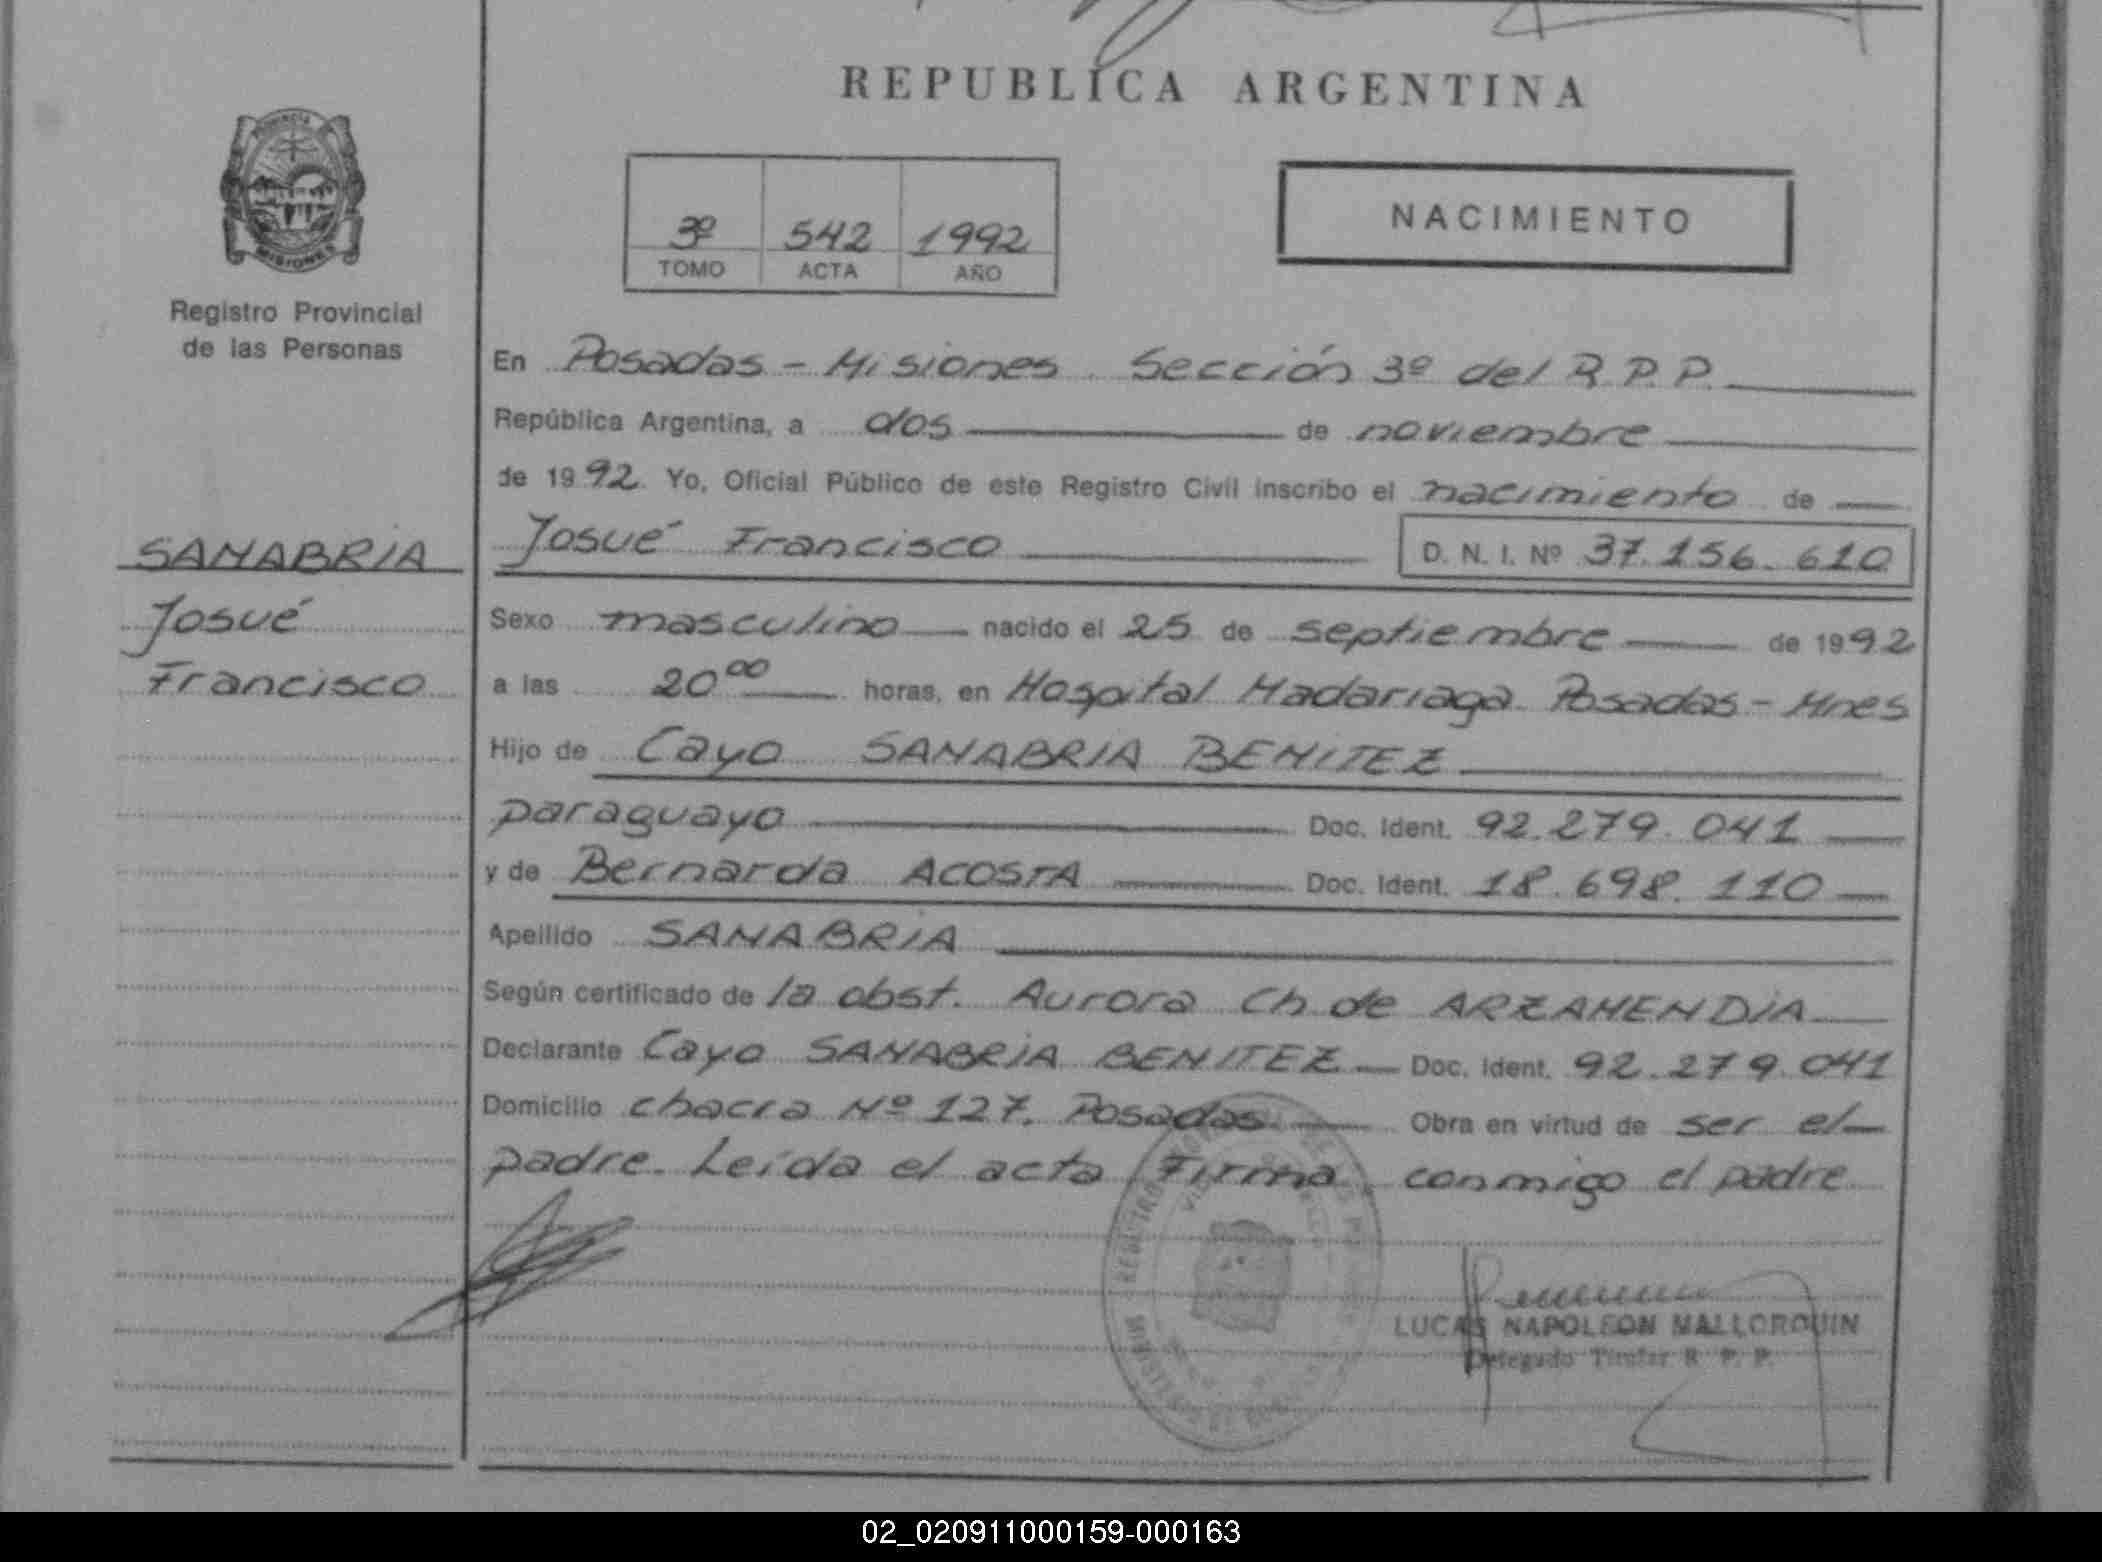 REPUBLICA ARGENTINA
Provincia
MISIONES
Registro Provincial
de las Personas
3º 542 1992
TOMO ACTA AÑO
NACIMIENTO
SANABRIA
Josué
Francisco
En Posadas - Misiones. Sección 3º del R.P.P.
República Argentina, a dos de noviembre
de 1992. Yo, Oficial Público de este Registro Civil inscribo el nacimiento de
Josué Francisco D. N. I. Nº 37.156.610
Sexo masculino nacido el 25 de septiembre de 1992
a las 20⁰⁰ horas, en Hospital Madariaga Posadas - Mnes
Hijo de Cayo SANABRIA BENITEZ
paraguayo Doc. Ident. 92.279.041
y de Bernarda ACOSTA Doc. Ident. 18.698.110
Apellido SANABRIA
Según certificado de la obst. Aurora Ch de ARZAMENDIA
Declarante Cayo SANABRIA BENITEZ Doc. Ident. 92.279.041
Domicilio chacra Nº 127. Posadas Obra en virtud de ser el
padre. Leída el acta Firma conmigo el padre
LUCAS NAPOLEON MALLORQUIN
Delegado Titular R. P. P.
02_020911000159-000163